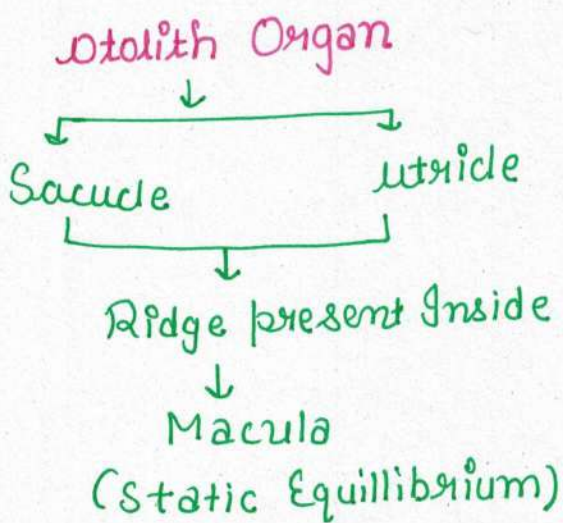 Otolith Organ
Saccule Utricle
Ridge present Inside
Macula
(Static Equillibrium)